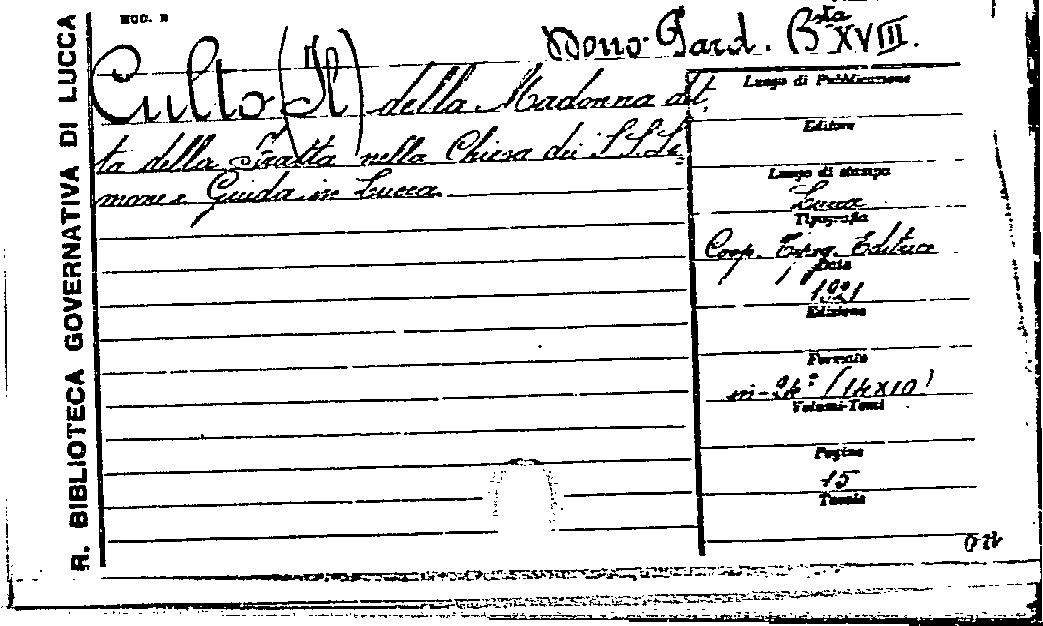 R. BIBLIOTECA GOVERNATIVA DI LUCCA
MOD. B
Dono Pard. Bsta XVIII.
Culto (Il) della Madonna det,
ta della Fratta nella Chiesa dei S.S. Si,
mone e Giuda in Lucca
Luogo di Pubblicazione
Editore
Luogo di stampa
Lucca
Tipografia
Coop. Tipog. Editrice
Data
1921
Edizione
Formato
in-24° (14x10)
Volumi-Tomi
Pagine
15
Tavole